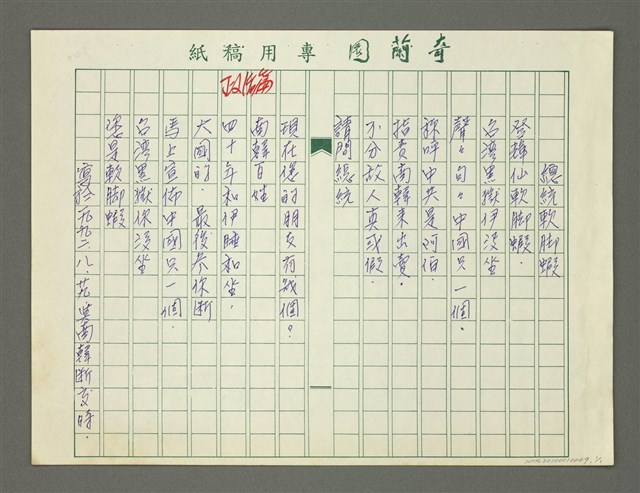 奇蘭園專用稿紙
政治篇
總統軟脚蝦
登輝仙軟脚蝦．
台灣黑獄伊沒坐
聲々句々中國只一個．
称呼中共是阿伯．
指責南韓來出賣．
不分敌人真或假．
請問總統
現在您的朋友有幾個？
南韓百姓
四十年和伊睡和坐．
大國的．最後參你断
馬上宣佈中國只一個．
台灣黑獄你沒坐
還是軟脚蝦
寫於一九九二．八．芫與南韓断交時．